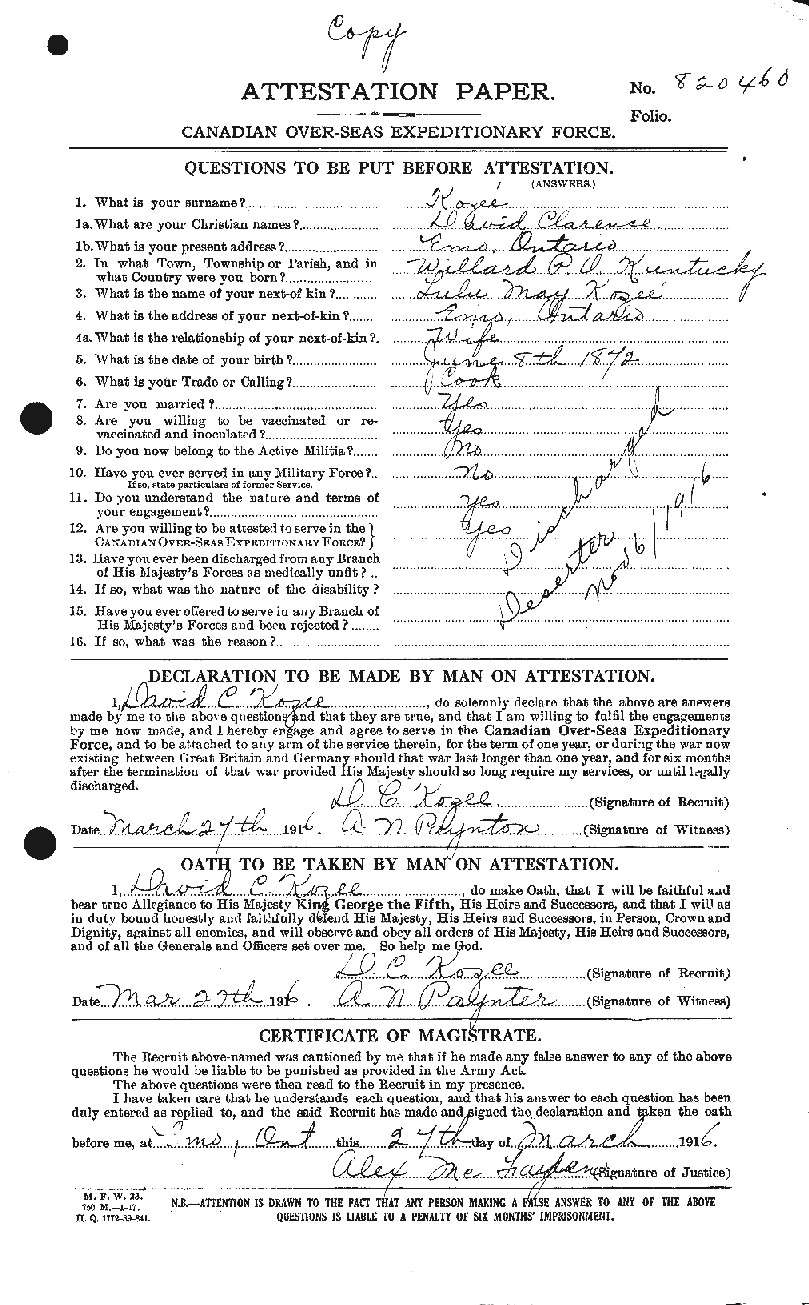 Copy
ATTESTATION PAPER.
No. 820460
Folio.
CANADIAN OVER-SEAS EXPEDITIONARY FORCE.
QUESTIONS TO BE PUT BEFORE ATTESTATION.
(ANSWERS)
1. What is your surname? Kozee
1a. What are your Christian names? David Clarence
1b. What is your present address? Emo, Ontario
2. In what Town, Township or Parish, and in what Country were you born? Willard P.O. Kentucky
3. What is the name of your next-of kin? Lulu May Kozee
4. What is the address of your next-of-kin? Emo, Ontario
4a. What is the relationship of your next-of-kin? Wife
5. What is the date of your birth? June 8th 1872
6. What is your Trade or Calling? Cook
7. Are you married? Yes
8. Are you willing to be vaccinated or re-vaccinated and inoculated? Yes
9. Do you now belong to the Active Militia? No
10. Have you ever served in any Military Force? No
If so, state particulars of former Service.
11. Do you understand the nature and terms of your engagement? Yes
12. Are you willing to be attested to serve in the CANADIAN OVER-SEAS EXPEDITIONARY FORCE? Yes
13. Have you ever been discharged from any Branch of His Majesty's Forces as medically unfit?
14. If so, what was the nature of the disability?
15. Have you ever offered to serve in any Branch of His Majesty's Forces and been rejected?
16. If so, what was the reason?
Discharged
Deserter
Nov 6/1916
DECLARATION TO BE MADE BY MAN ON ATTESTATION.
I, David C Kozee, do solemnly declare that the above are answers
made by me to the above questions and that they are true, and that I am willing to fulfil the engagements
by me now made, and I hereby engage and agree to serve in the Canadian Over-Seas Expeditionary
Force, and to be attached to any arm of the service therein, for the term of one year, or during the war now
existing between Great Britain and Germany should that war last longer than one year, and for six months
after the termination of that war provided His Majesty should so long require my services, or until legally
discharged.
D C Kozee (Signature of Recruit)
Date March 27th 1916. A N Poynton (Signature of Witness)
OATH TO BE TAKEN BY MAN ON ATTESTATION.
I, David C Kozee, do make Oath, that I will be faithful and
bear true Allegiance to His Majesty King George the Fifth, His Heirs and Successors, and that I will as
in duty bound honestly and faithfully defend His Majesty, His Heirs and Successors, in Person, Crown and
Dignity, against all enemies, and will observe and obey all orders of His Majesty, His Heirs and Successors,
and of all the Generals and Officers set over me. So help me God.
D C Kozee (Signature of Recruit)
Date Mar 27th 1916. A. N Paynter (Signature of Witness)
CERTIFICATE OF MAGISTRATE.
The Recruit above-named was cautioned by me that if he made any false answer to any of the above
questions he would be liable to be punished as provided in the Army Act.
The above questions were then read to the Recruit in my presence.
I have taken care that he understands each question, and that his answer to each question has been
duly entered as replied to, and the said Recruit has made and signed the declaration and taken the oath
before me, at Emo, Ont this 27th day of March 1916.
Alex Mc (Signature of Justice)
M. F. W. 23.
H. Q. 1772-39-841.
N.B.—ATTENTION IS DRAWN TO THE FACT THAT ANY PERSON MAKING A FALSE ANSWER TO ANY OF THE ABOVE
QUESTIONS IS LIABLE TO A PENALTY OF SIX MONTHS' IMPRISONMENT.